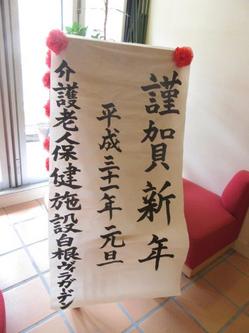 謹賀新年
平成三十一年 元旦
介護老人保健施設白根ヴィラガーデン